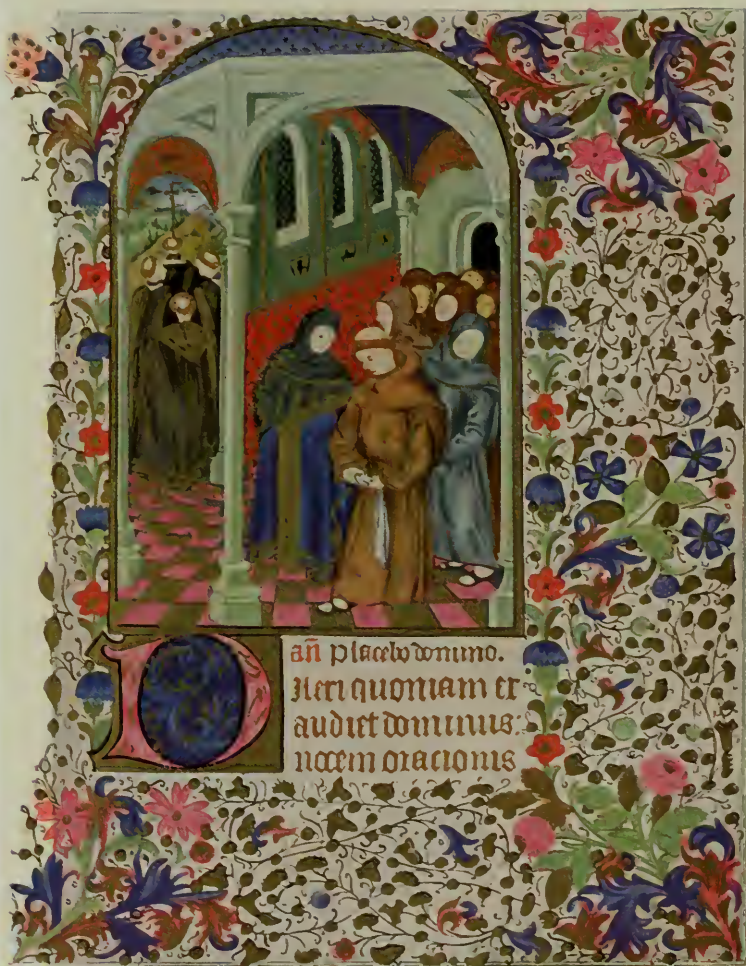 añ Placebo domino.
Dileri quoniam ex
audiet dominus:
vocem oracionis